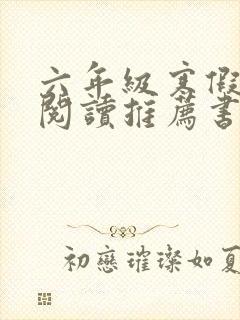 六年級寒假
閱讀推薦書
初戀璀璨如夏